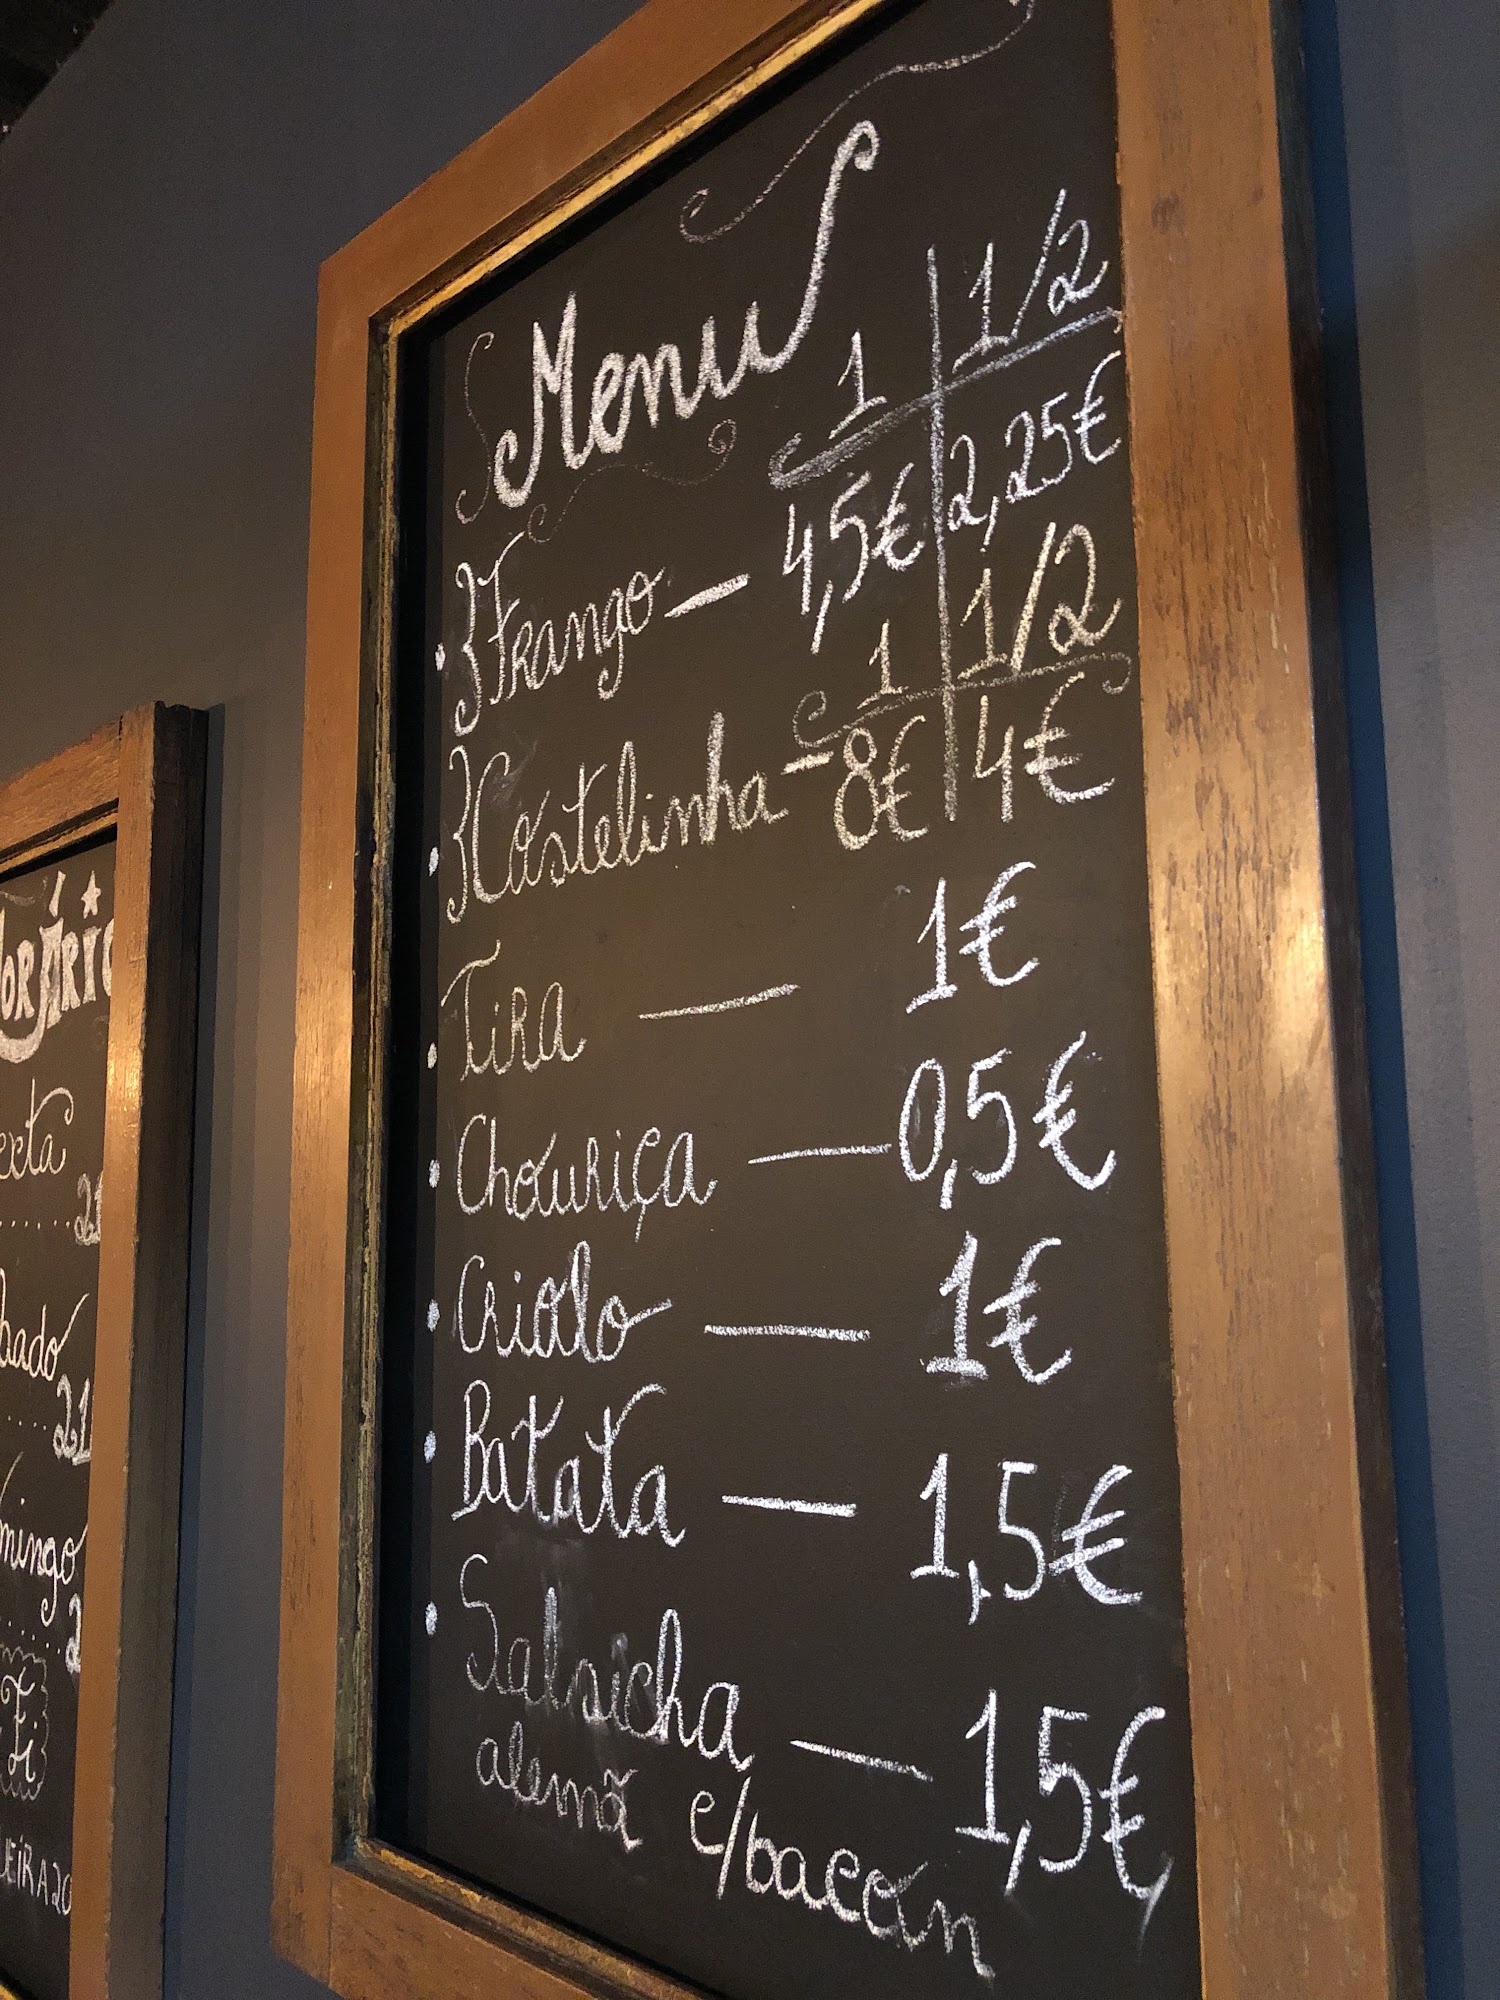 Menu
1 1/2
Frango — 4,5€ 2,25€
1 1/2
Costelinha — 8€ 4€
Tira — 1€
Chouriça — 0,5€
Criolo — 1€
Batata — 1,5€
Salsicha — 1,5€
alemã c/bacon
21
21
2